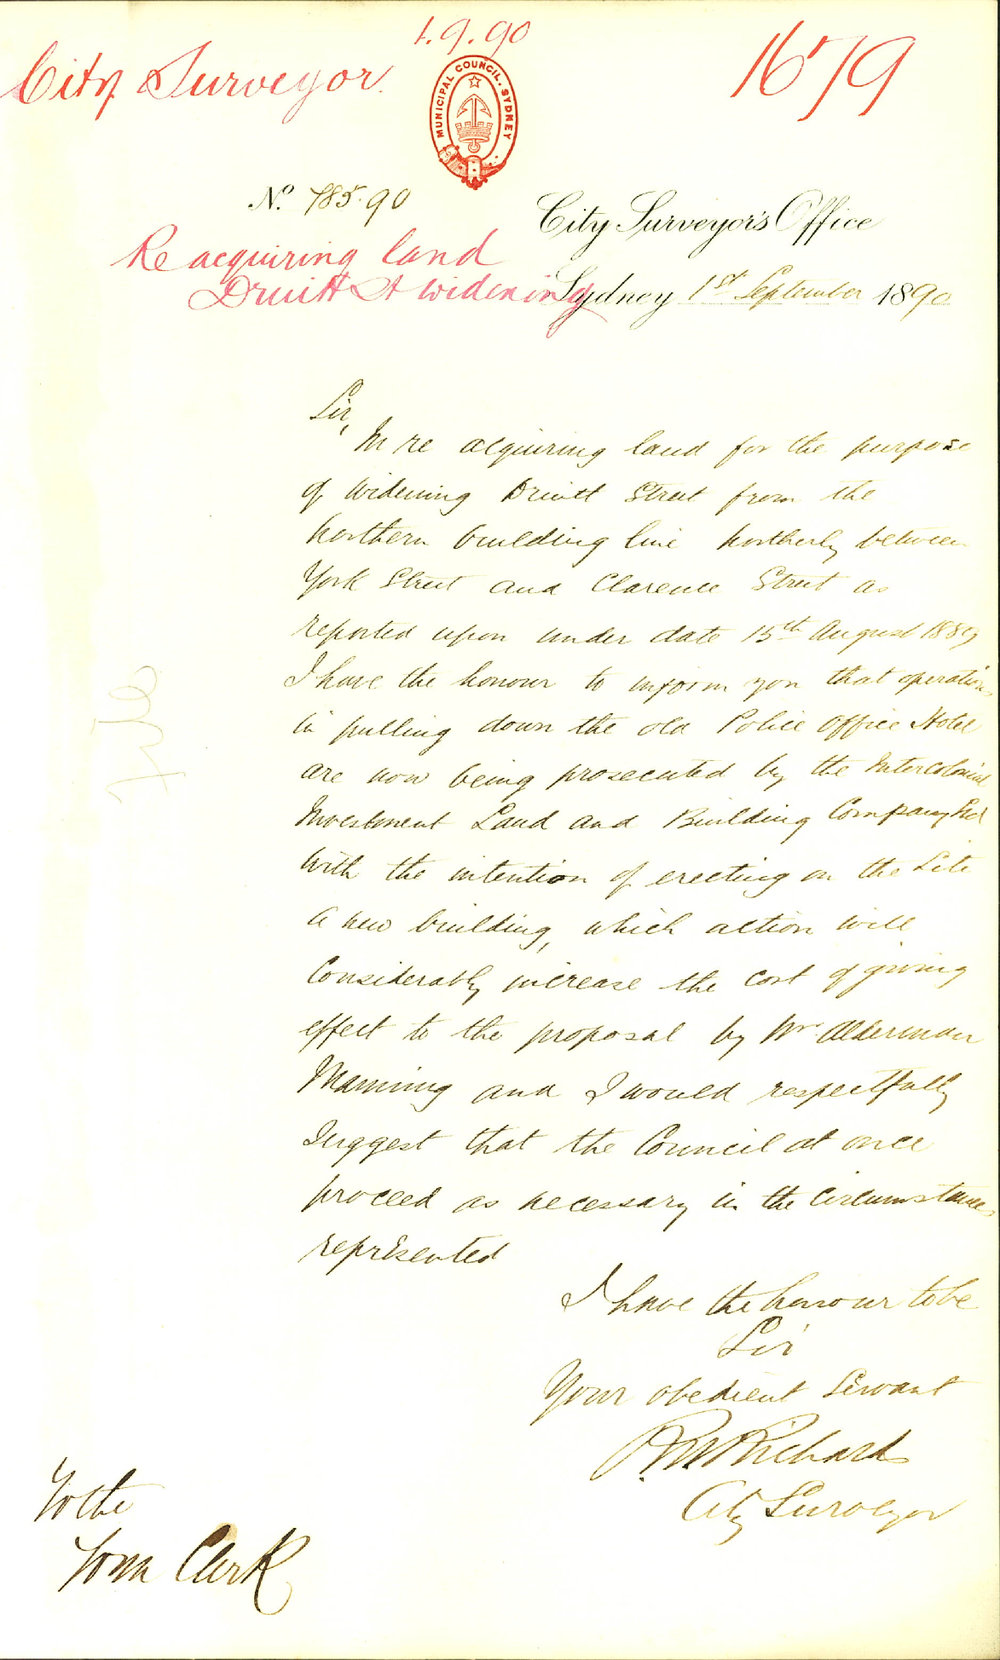 1.9.90
City Surveyor.
1679
MUNICIPAL COUNCIL. SYDNEY
No. 785.90
City Surveyor's Office
Re acquiring land
Druitt St widening
Sydney 1st September 1890
Sir,
In re acquiring land for the purpose
of widening Druitt Street from the
Northern building line northerly between
York Street and Clarence Street as
reported upon under date 15th August 1889
I have the honour to inform you that operations
in pulling down the old Police Office Hotel
are now being prosecuted by the Intercolonial
Investment Land and Building Company Ltd
with the intention of erecting on the Site
a new building, which action will
Considerably increase the cost of giving
effect to the proposal by Mr Alderman
Manning and I would respectfully
Suggest that the Council at once
proceed as necessary in the circumstances
represented
I have the honour to be
Sir
Your obedient Servant
Richards
City Surveyor
To the
Town Clerk
File